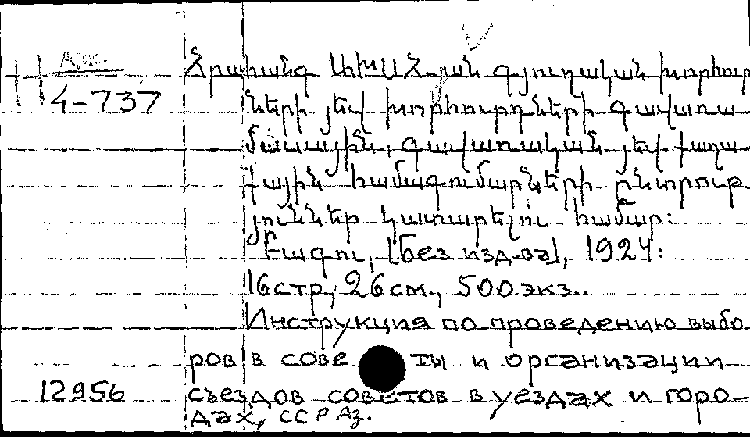 Арм.
4-737
Հրահանգ ԱԽՍՀ-յան գյուղական խորհուր
ների յեվ խորհուրդների գավառա
մասային, գավառական յեվ քաղա
քային համագումարների ընտրութ
յուններ կատարելու համար:
Բագու, [без изд-ва], 1924:
16стр, 26см., 500экз..
Инструкция по проведению выбо
ров в сове ты и организации
12956 съездов советов в уездах и горо-
дах, ССР Аз.